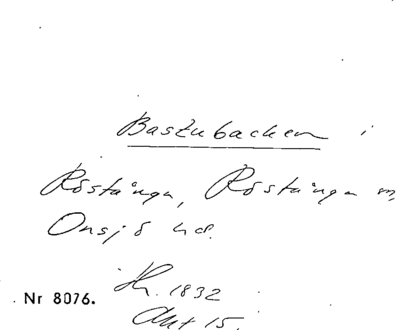 Bastubacken i
Röstånga, Röstånga sn,
Onsjö hd.
Hr. 1832
Akt 15.
Nr 8076.